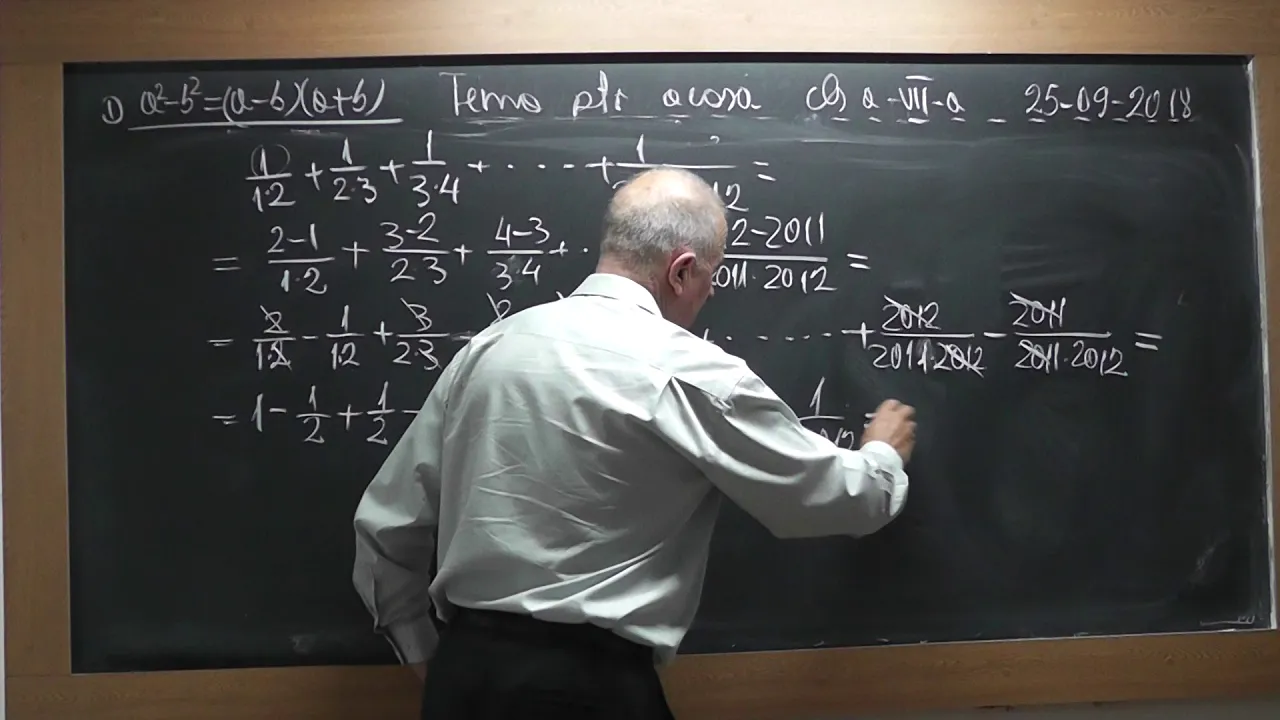 1) a²-b²=(a-b)(a+b) Temă ptr acasă cls a-VII-a 25-09-2018
(1)/1·2 + 1/2·3 + 1/3·4 + ····· + 1/ =
= 2-1/1·2 + 3-2/2·3 + 4-3/3·4 + · 2-2011/2011·2012 =
= 2/1·2 - 1/1·2 + 3/2·3 - 2 ······ + 2012/2011·2012 - 2011/2011·2012 =
= 1 - 1/2 + 1/2 - 1/ =